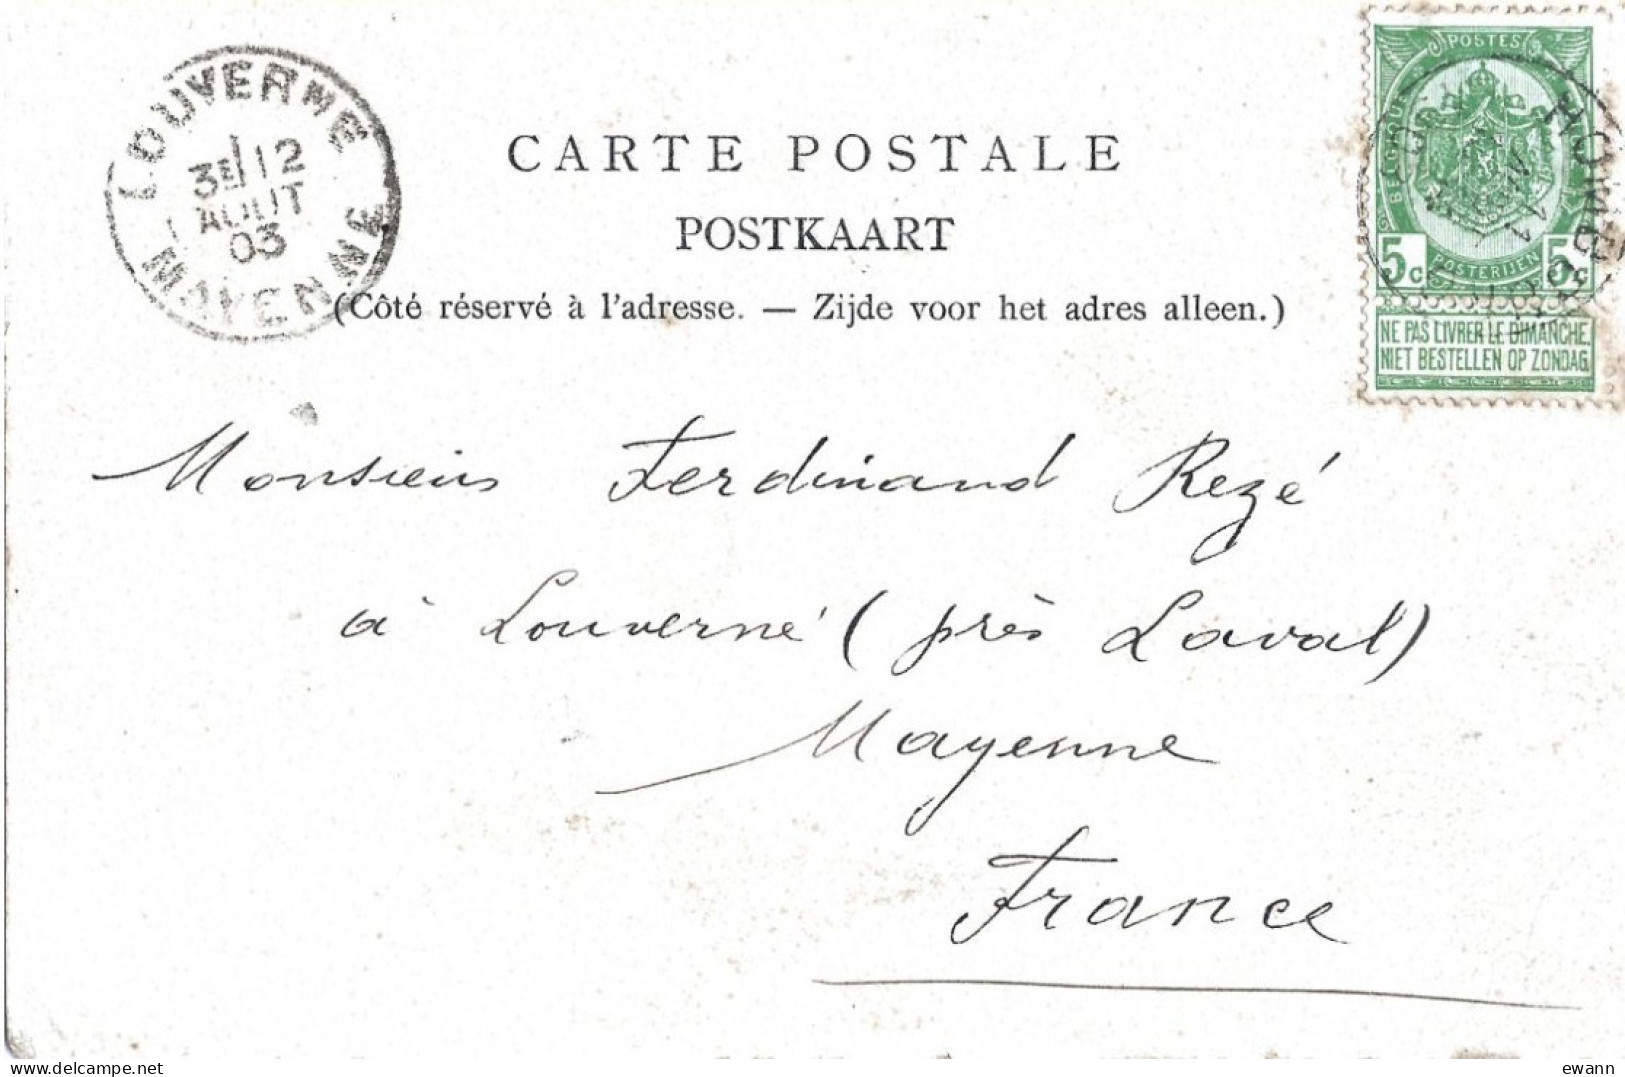 LOUVERNE
3E 12
AOUT
03
MAYENNE
CARTE POSTALE
POSTKAART
(Côté réservé à l'adresse. — Zijde voor het adres alleen.)
POSTES
BELGIQUE
5c 5c
POSTERIJEN
NE PAS LIVRER LE DIMANCHE.
NIET BESTELLEN OP ZONDAG.
Monsieur Ferdinand Rezé
à Louverné (près Laval)
Mayenne
France
ewann